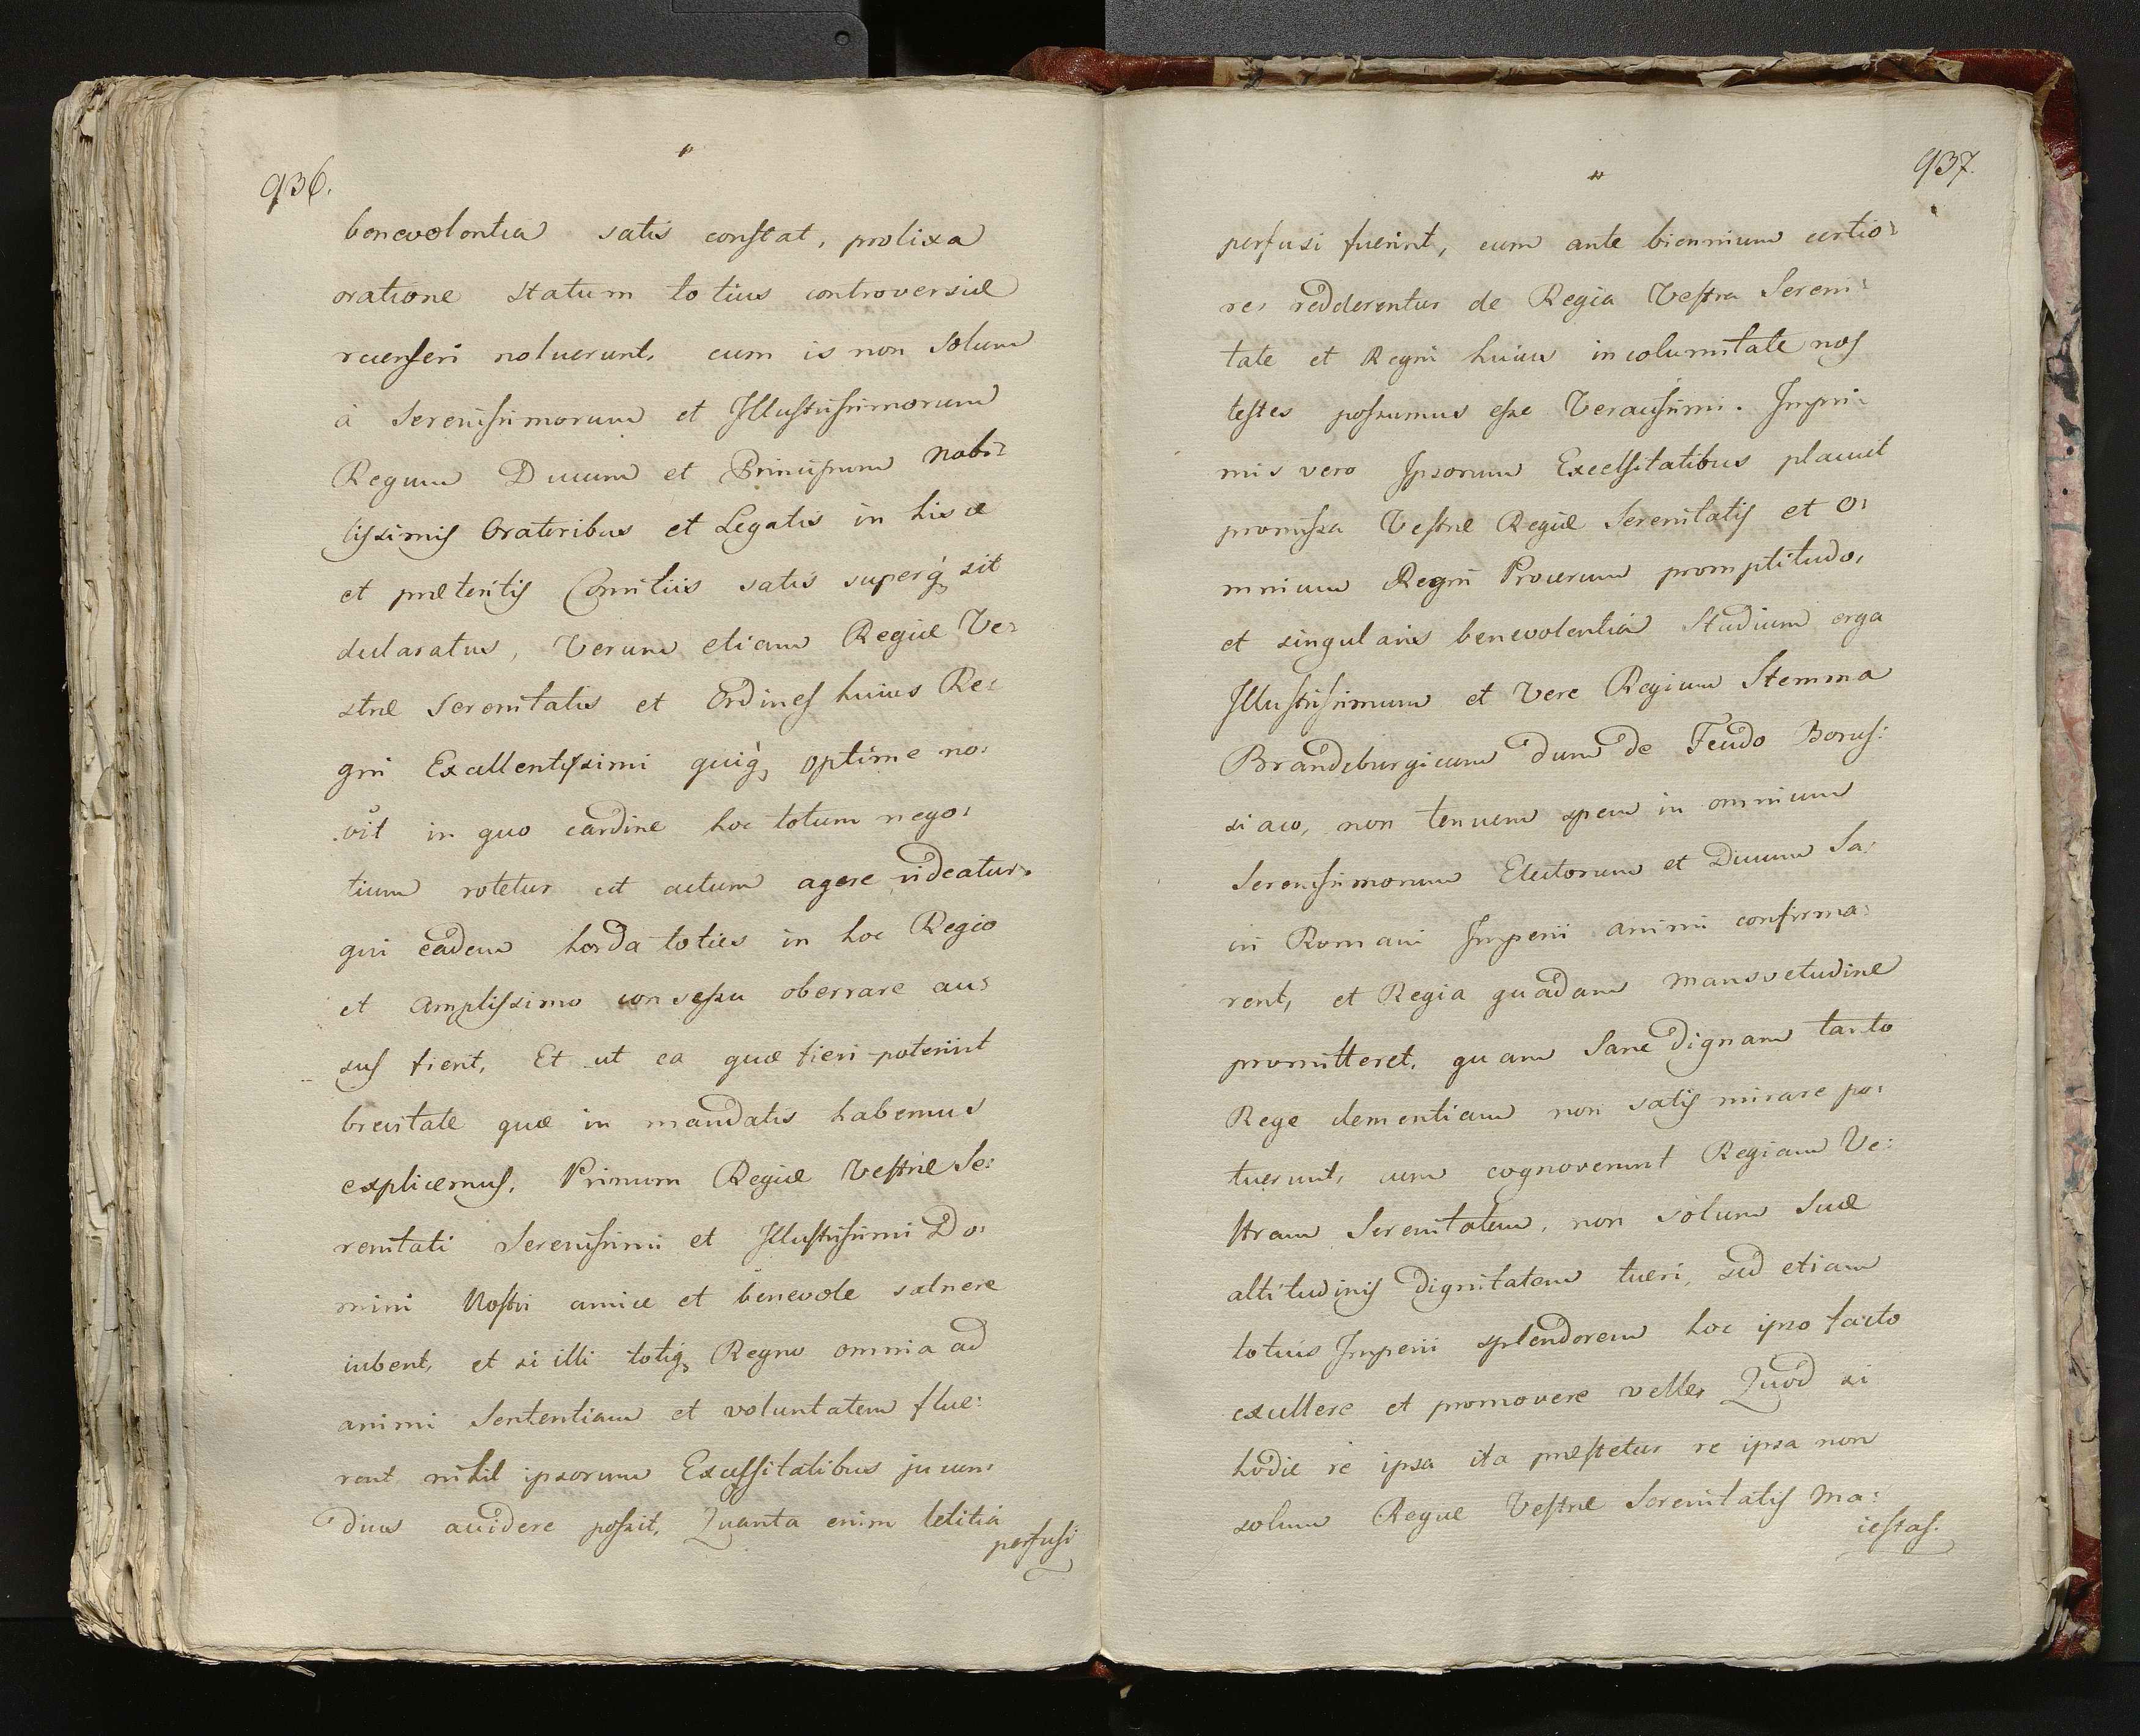 936.
benevolentia satis constat, prolixa
oratione statum totius controversiæ
recenseri noluerunt, cum is non Solum
à Serenissimorum et Illustrissimorum
Regum Ducum et Principum Nobi:
lissimis Oratoribus et Legatis in his ce
et præteritis Comitiis satis superq, sit
declaratus, Verum etiam Regiæ Ve:
stræ Serenitatis et Ordines huius Re:
gni Excellentissimi quiq, optime no:
vit in quo cardine hoc totum nego:
tium rotetur ut actum agere videatur.
qui eadem horda toties in hoc Regio
et Amplissimo consessu oberrare au:
sus fierit, Et ut ea quæ fieri poterint
brevitate quæ in mandatis habemus
explicemus, Primum Regiæ Vestræ Se:
renitati Serenissimi et Illustrissimi Do:
mini Nostri amice et benevole salnere
iubent, et si illi totiq, Regno omnia ad
animi Sententiam et voluntatem flue:
rent nihil ipsorum Excelsitatibus jucun:
dius accidere possit, Quanta enim letitia
perfusi
937.
perfusi fuerint, cum ante biennium certio:
res redderentur de Regia Vestra Sereni:
tate et Regni huius incolumitate nos
testes possumus esse Veracissimi. Impri:
mis vero Ipsorum Excelsitatibus placuit
promissa Vestræ Regiæ Serenitatis et O:
mnium Regni Procerum promptitudo,
et singularis benevolentia Studium erga
Illustrissimum et Vere Regium Stemma
Brandeburgicum dum de Feudo Borus:
siaco, non tenuem spem in omnium
Serenissimorum Electorum et Ducum Sa:
cri Romani Imperii animi confirma:
rent, et Regia quadam Mansvetudine
promitteret. quam Sane dignam tanto
Rege clementiam non satis mirare po:
tuerunt, cum cognoverunt Regiam Ve:
stram Serenitatem, non solum Suæ
altitudinis dignitatem tueri, sed etiam
totius Imperii splendorem hoc ipso facto
excellere et promovere velle, Quod si
hodie re ipsa ita præstetur re ipsa non
solum Regiæ Vestræ Serenitatis Ma:
iestas.